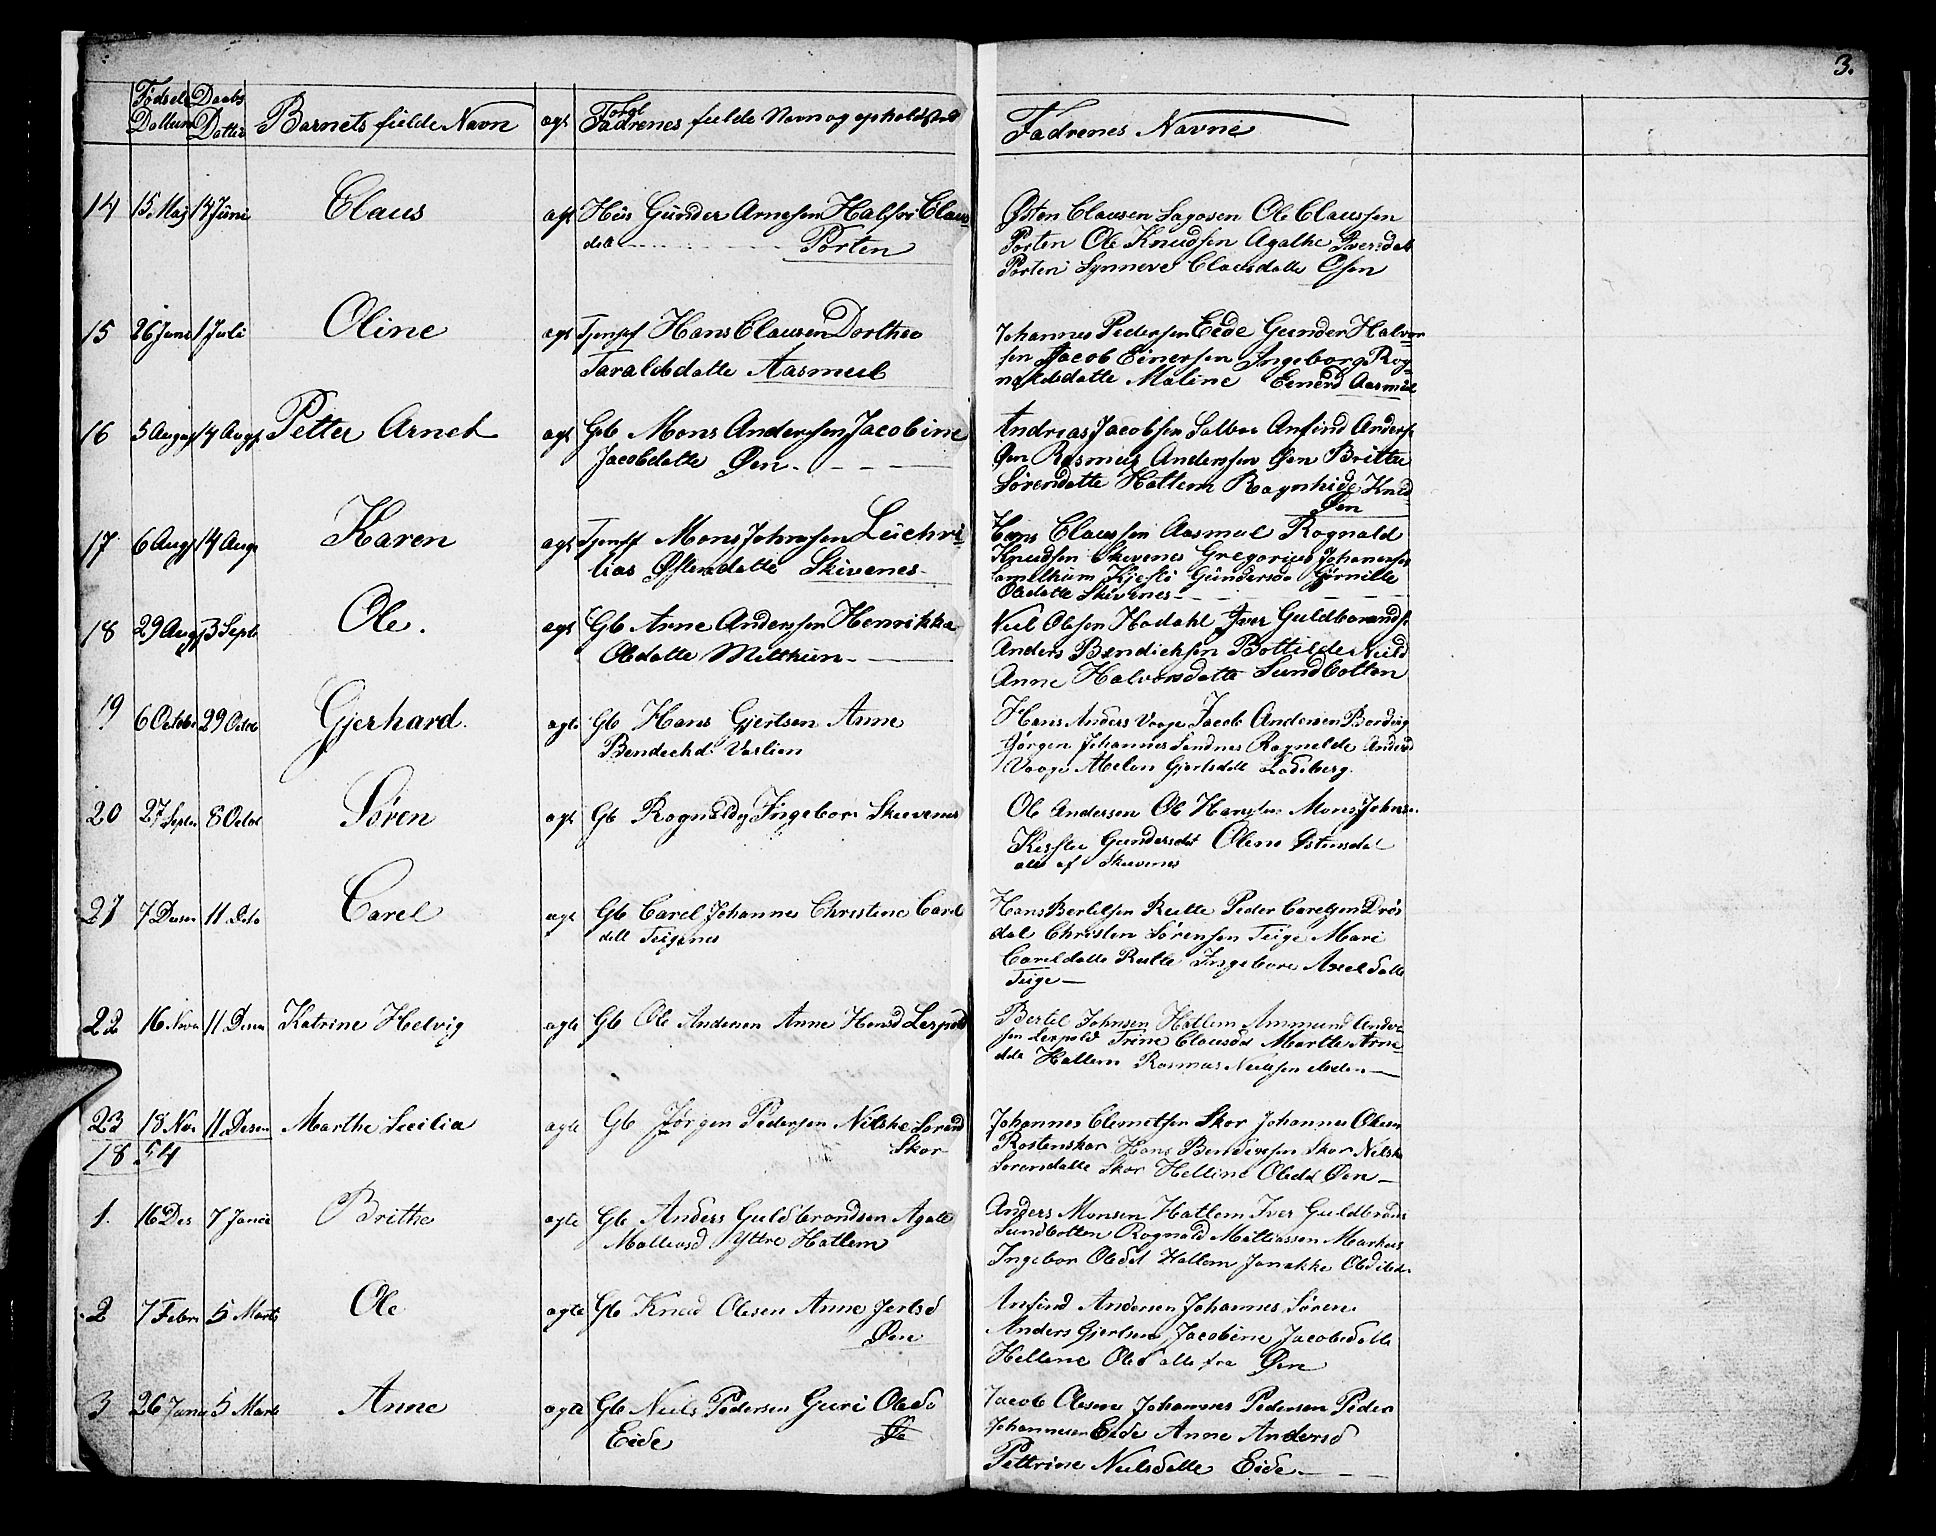 3.
Fødsels Daabs
Datum Datter Barnets fulde Navn agt Forl Fadrenes fulde Navn og opholdsted Fadrenes Navne
14 15 Maj 14 Juni Claus agt Hus Gunder Arnesen Halfri Claus
datt Porten
Østen Clausen Sagosen Ole Claussen
Porten Ole Knudsen Agathe Iversdatt
Porten Synneve Clausdatte Osen
15 26 Juni 1 Juli Oline agt Tjenf Hans Clausen Dorthea
Taraldsdatte Aasmul
Johannes Pedersen Eide Gunder Halvor
sen Jacob Einersen Ingeborg Rog
naldsdatte Maline Einerd Aasmul
16 5 August 14 Augs Petter Arnet agt Gb Mons Andersen Jacobine
Jacobdatte Øen
Andreas Jacobsen Solbve Anfind Anders
Øen Rasmus Anderssen Øen Britte
Sørendatte Hatlem Ragnhide Knud
Øen
17 6 Augs 14 Augs Karen agt Tjensf Mons Johnsen Luchri
lias Østendatte Skivenes
Hans Claussen Aasmul Rognald
Knudsen Skivenes Gregorius Johannsen
Kjesti Gundersda Gørnille
Oledatte Skivenes
18 29 Augs 3 Septb Ole. agt Gb Anne Andersen Henrikka
Oledatte Melthun
Niel Olesen Hodahl Iver Guldbrands
Anders Bendichsen Bottilde Nield
Anne Halvorsdatte Sundbotten
19 6 Octobe 29 Octob Gjerhard. agte Gb Hans Gjertsen Anne
Bendechd. Varlien
Hans Anders Vaage Jacob Andersen Bordvig
Jørgen Johannes Sandnes Rognelde Andersd
Vaage Abelon Gjertsdatt Ladeberg.
20 27 Septem 8 Octob Søren agt Gb Rognaldg Ingebor Skivenes
Ole Andersen Ole Hansen Mons Johns
Kesstie Gundersdat Olene Østensdat
alle af Skivenes
21 7 Desem 11 Deto Carel agt Gb Carel Johannes Christine Carel
datt Teigenes
Hans Bertelsen Rutte Peder Carelsen Drøs
dal Christen Sørensen Teige Mari
Careldatte Rutte Ingebore Axeldatte
Teige
22 16 Nove 11 Desem Katrine Helvig agte Gb Ole Andersen Anne Hansd Lerpold
Bertel Johnsen Hatlem Ammund Ander
sen Lerpold Trine Clausdat Marthe Arne
datt Hatlem Rasmus Neelsen
23 18 Nov 11 Desem Marthe Secilia agte Gb Jørgen Pedersen Nilske Sørend
Skor
Johannes Clemetsen Skor Johannes Olesen
Rostenskor Hans Bendixsen Skor Nilske
Sørensdatte Skor Helline Oledat Øen
1854
1. 16 Des 7 Janua Brithe agte Gb Anders Guldbrandsen Agate
Matteasd Yttre Hatlem
Anders Monsen Hatlem Iver Guldbrands
Sundbotten Rognald Matiassen Markus
Ingebor Oledat Hatlem Janakke Oled
2 7 Febru 5 Marts Ole agte Gb Knud Olesen Anne Jertsd
Øen
Anfind Andersen Johannes Søren
Anders Gjertsen Jacobine Jacobsdatte
Hellene Oled alle fra Øen
3 26 Janua 5 Marts Anne agte Gb Niels Pedersen Guri Olesd
Eide
Jacob Olesen Johannes Pedersen Peder
Johannesen Eide Anne Andersd
Pettrine Nielsdatte Eide